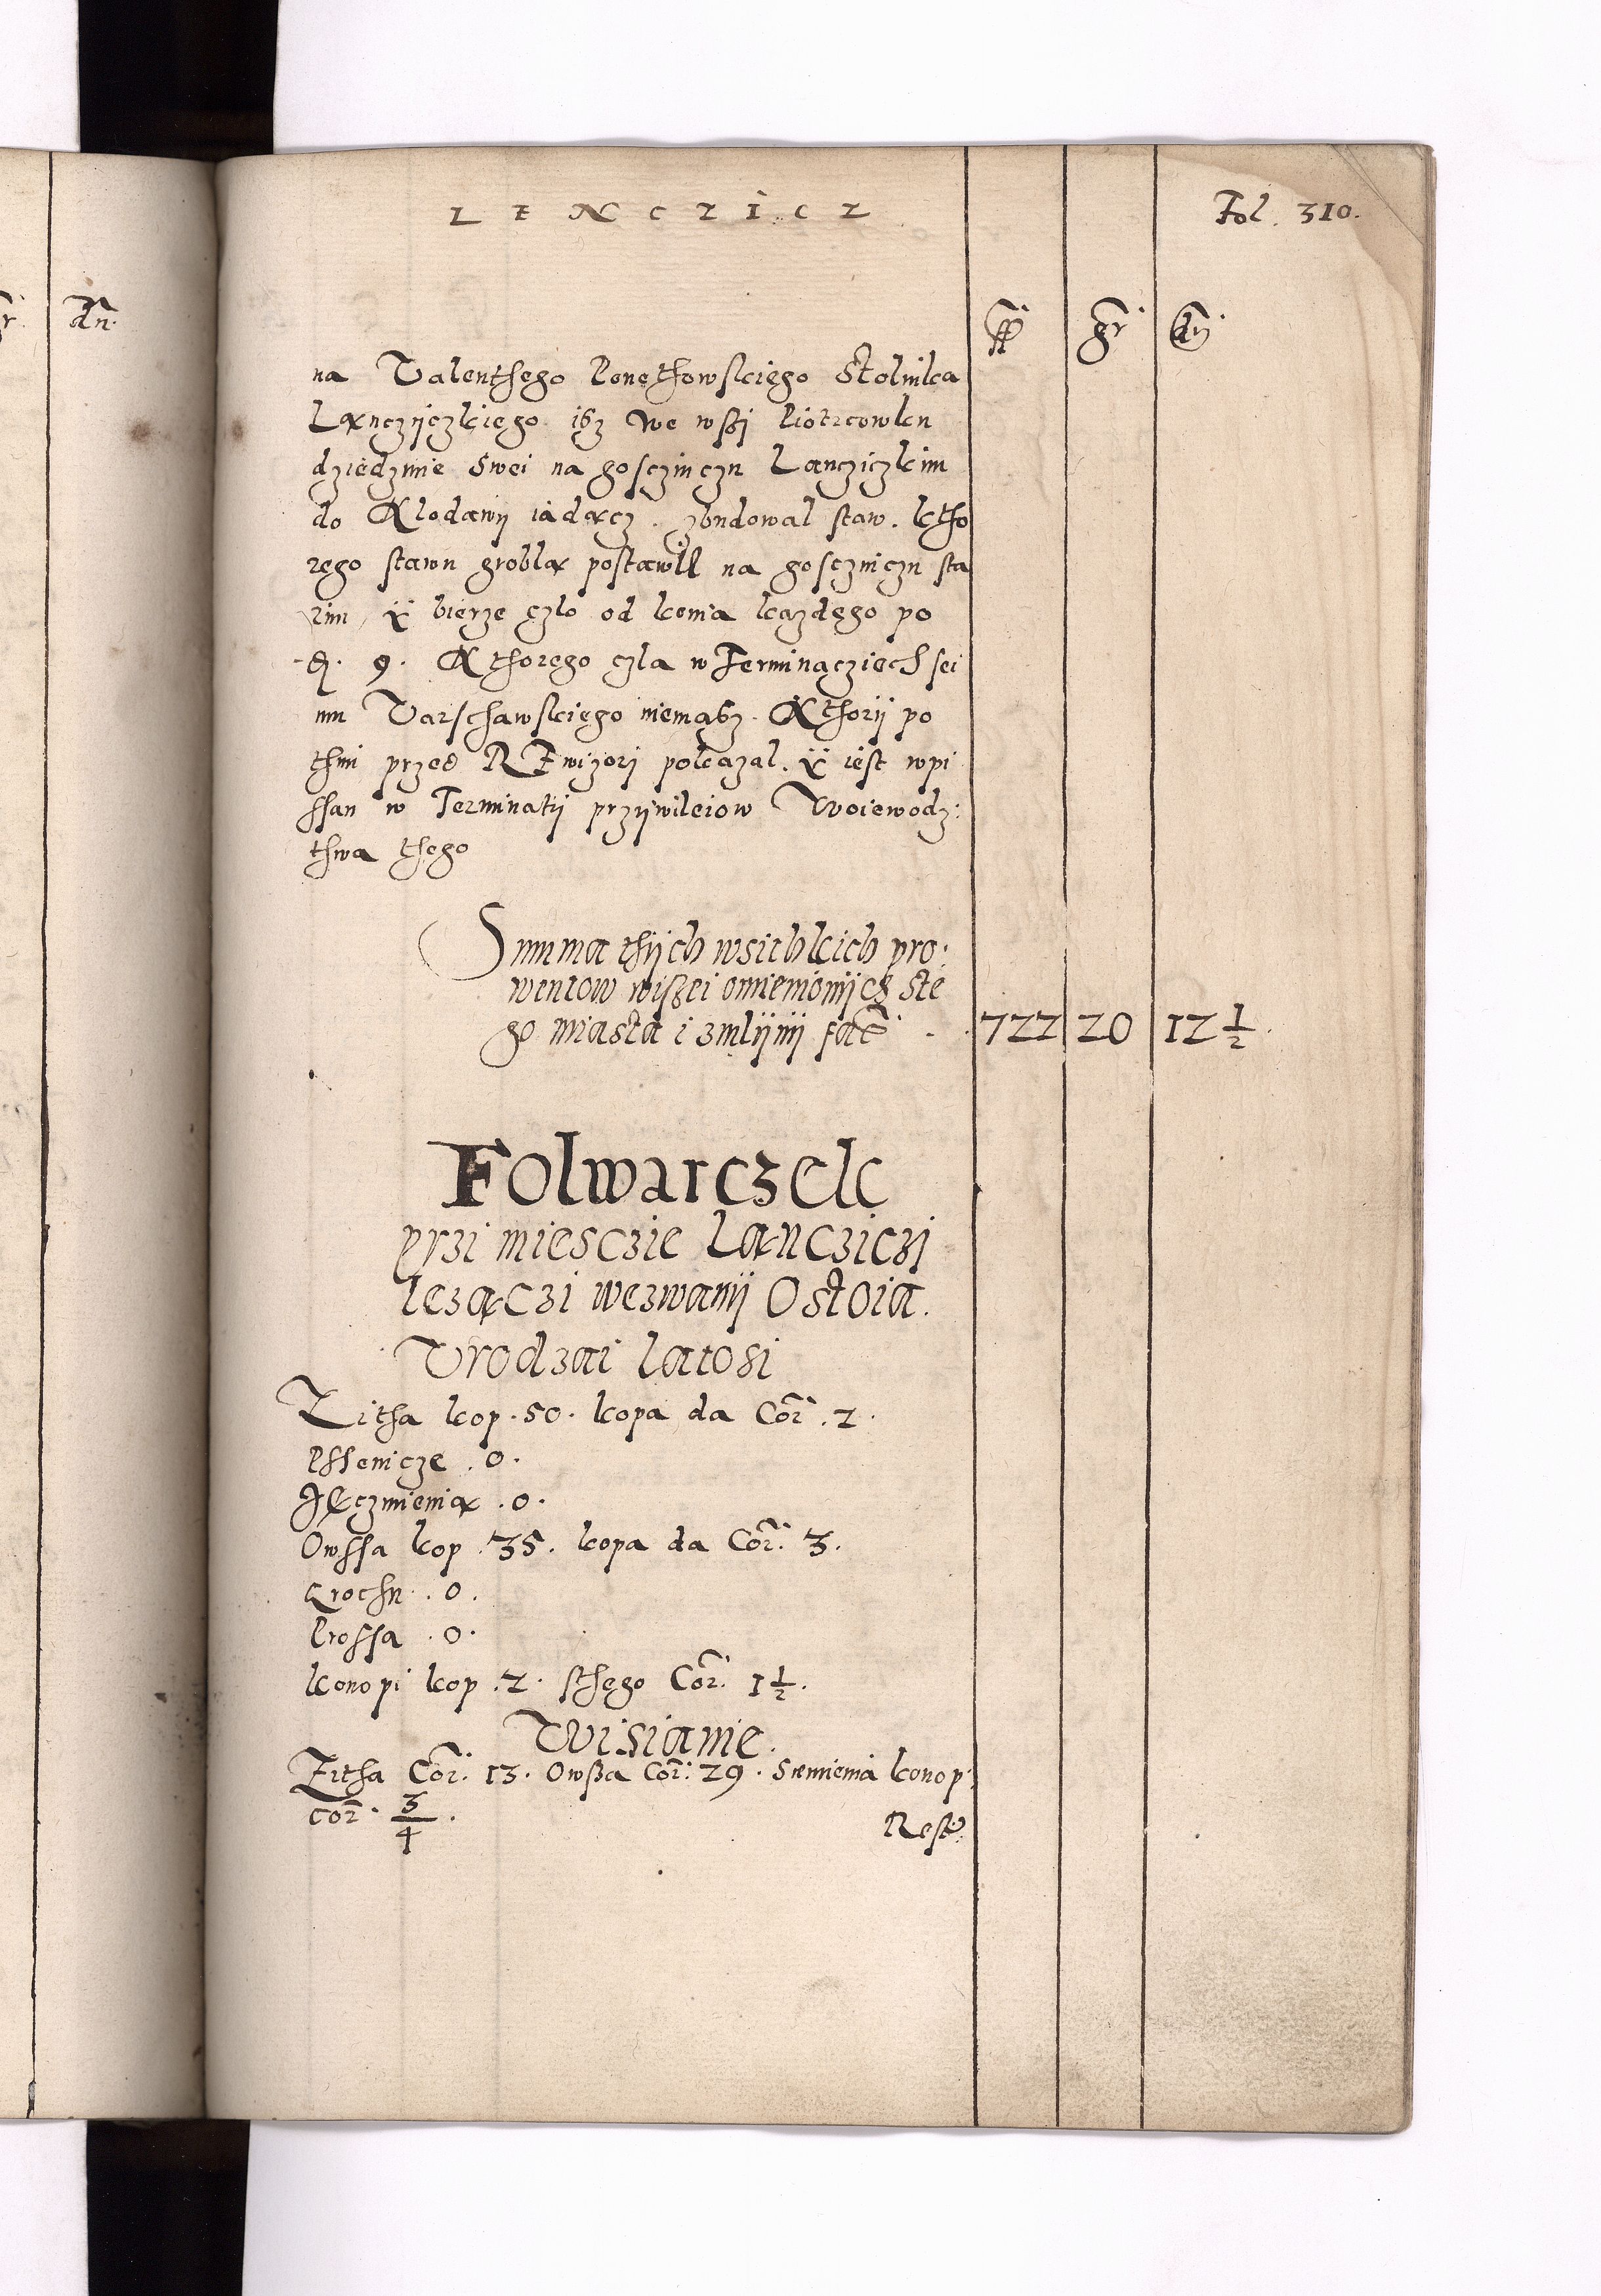 LENCZICZ
Fol. 310.
fl gr dn
na Valenthego Ponethowskiego Stolnika
Lanczyczkiego isz we wszi Piotrcowku
dziedzinie Swei na gosczinczu Lancziczkim
do Klodawy iadacz. zbudowal staw. ktho
rego stawu groblą postawił na gosczinczu sta
rim, Y bierze czlo od konia kazdego po
d. 9. Kthorego czla w Terminacziech sei
mu Varschawskiego niemasz. Kthorÿ po
thim przed REwizori pokazal. Y iest wpi
ssan w Terminatÿ przÿwileiow Woiewodz:
thwa thego
Summa thÿch wsitkkich pro:
wentow wiszei omienionÿch ste
go miasta i zmlÿnÿ facit
722 20 12 1/2
Folwarczek
przi miesczie Lancziczi
lezączi wezwanÿ Ostoia.
Vrodzai latosi
Zitha kop. 50. kopa da Cor. 2.
Pssenicze. 0.
Jęczmienią. 0.
Owssa kop. 35. kopa da Cor. 3.
Grochu. 0.
Prossa. 0.
Konopi kop. 2. sthego Cor. 1 1/2.
Wisianie.
Zitha Cor. 13. Owsza Cor. 29. Siemienia konop:
cor. 3/4.
Rest
gr dn.